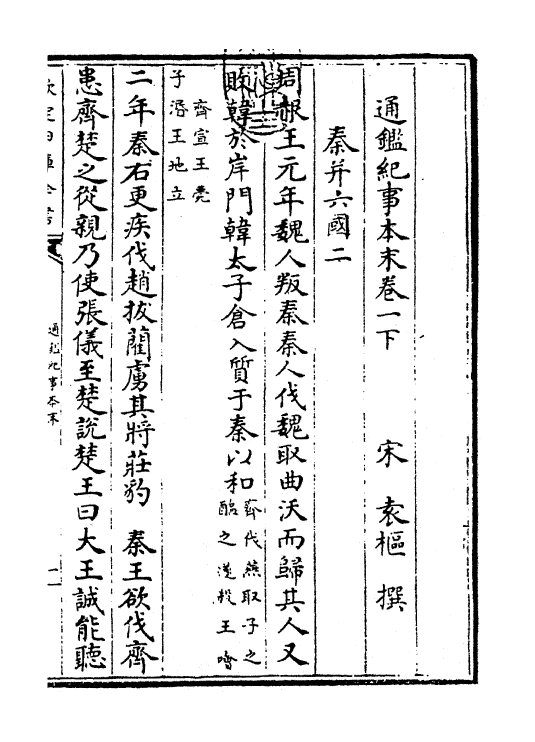 通鑑紀事本末卷一下 宋 袁樞 撰
秦并六國二
周赧王元年魏人叛秦秦人伐魏取曲沃而歸其人又
敗韓於岸門韓太子倉入質于秦以和齊伐燕取子之
醢之遂殺王噲
齊宣王薨
子湣王地立
二年秦右更疾伐趙拔藺虜其將莊豹 秦王欲伐齊
患齊楚之從親乃使張儀至楚說楚王曰大王誠能聽
欽定四庫全書
通鑑紀事本末